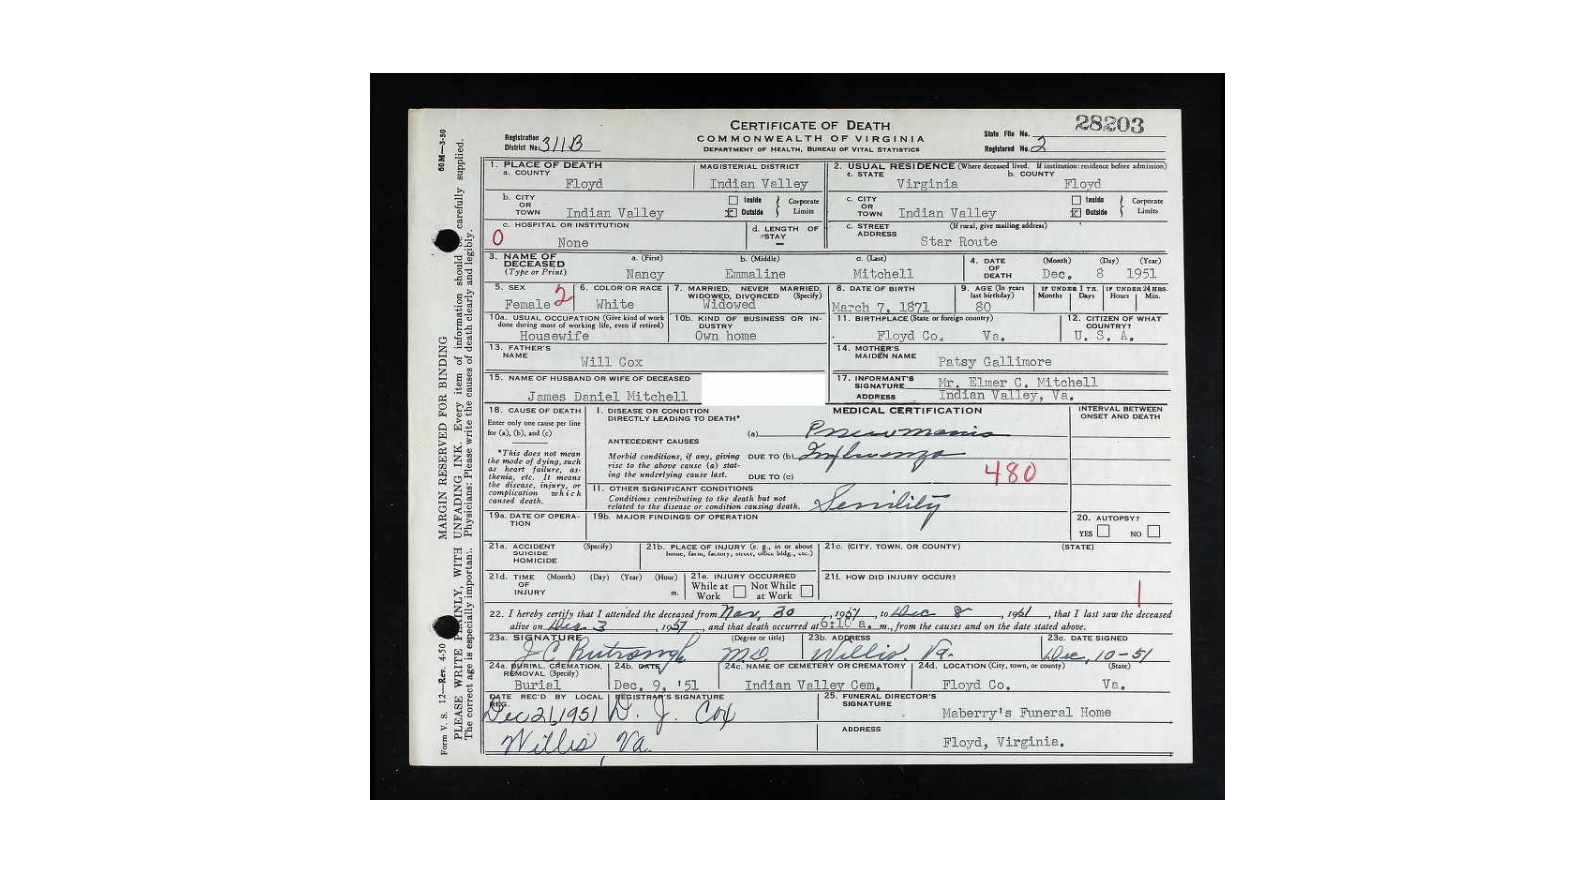 28203
CERTIFICATE OF DEATH
COMMONWEALTH OF VIRGINIA
DEPARTMENT OF HEALTH, BUREAU OF VITAL STATISTICS
Registration District No. 311B
State File No.
Registered No. 2
60M—3-50
MARGIN RESERVED FOR BINDING
PLEASE WRITE PLAINLY, WITH UNFADING INK. Every item of information should be carefully supplied.
The correct age is especially important. Physicians: Please write the causes of death clearly and legibly.
Form V. S. 12—Rev. 4-50
1. PLACE OF DEATH
a. COUNTY
Floyd
MAGISTERIAL DISTRICT
Indian Valley
2. USUAL RESIDENCE (Where deceased lived. If institution: residence before admission)
a. STATE
Virginia
b. COUNTY
Floyd
b. CITY OR TOWN Indian Valley
Inside Outside Corporate Limits
c. CITY OR TOWN Indian Valley
Inside Outside Corporate Limits
c. HOSPITAL OR INSTITUTION
0
None
d. LENGTH OF STAY
—
c. STREET ADDRESS
(If rural, give mailing address)
Star Route
3. NAME OF DECEASED
(Type or Print)
a. (First)
Nancy
b. (Middle)
Emmaline
c. (Last)
Mitchell
4. DATE OF DEATH
(Month) (Day) (Year)
Dec. 8 1951
5. SEX
Female 2
6. COLOR OR RACE
White
7. MARRIED, NEVER MARRIED, WIDOWED, DIVORCED (Specify)
Widowed
8. DATE OF BIRTH
March 7, 1871
9. AGE (In years last birthday)
80
IF UNDER 1 YR. Months Days
IF UNDER 24 HRS. Hours Min.
10a. USUAL OCCUPATION (Give kind of work done during most of working life, even if retired)
Housewife
10b. KIND OF BUSINESS OR INDUSTRY
Own home
11. BIRTHPLACE (State or foreign country)
Floyd Co. Va.
12. CITIZEN OF WHAT COUNTRY?
U. S. A.
13. FATHER'S NAME
Will Cox
14. MOTHER'S MAIDEN NAME
Patsy Gallimore
15. NAME OF HUSBAND OR WIFE OF DECEASED
James Daniel Mitchell
17. INFORMANT'S SIGNATURE Mr. Elmer C. Mitchell
ADDRESS Indian Valley, Va.
18. CAUSE OF DEATH
Enter only one cause per line for (a), (b), and (c)
*This does not mean the mode of dying, such as heart failure, asthenia, etc. It means the disease, injury, or complication which caused death.
MEDICAL CERTIFICATION
INTERVAL BETWEEN ONSET AND DEATH
I. DISEASE OR CONDITION DIRECTLY LEADING TO DEATH*
(a) Pneumonia
ANTECEDENT CAUSES
Morbid conditions, if any, giving rise to the above cause (a) stating the underlying cause last.
DUE TO (b) Influenza
DUE TO (c)
480
II. OTHER SIGNIFICANT CONDITIONS
Conditions contributing to the death but not related to the disease or condition causing death.
Senility
19a. DATE OF OPERATION
19b. MAJOR FINDINGS OF OPERATION
20. AUTOPSY?
YES NO
21a. ACCIDENT SUICIDE HOMICIDE (Specify)
21b. PLACE OF INJURY (e. g., in or about home, farm, factory, street, office bldg., etc.)
21c. (CITY, TOWN, OR COUNTY) (STATE)
21d. TIME OF INJURY (Month) (Day) (Year) (Hour) m.
21e. INJURY OCCURRED
While at Work Not While at Work
21f. HOW DID INJURY OCCUR?
1
22. I hereby certify that I attended the deceased from Nov. 30, 1951, to Dec 8, 1951, that I last saw the deceased
alive on Dec 3, 1951, and that death occurred at 6:10 a. m., from the causes and on the date stated above.
23a. SIGNATURE (Degree or title)
J C M.D.
23b. ADDRESS
Willis Va.
23c. DATE SIGNED
Dec, 10-51
24a. BURIAL, CREMATION, REMOVAL (Specify)
Burial
24b. DATE
Dec. 9, '51
24c. NAME OF CEMETERY OR CREMATORY
Indian Valley Cem.
24d. LOCATION (City, town, or county) (State)
Floyd Co. Va.
DATE REC'D BY LOCAL REG.
Dec 21, 1951
REGISTRAR'S SIGNATURE
D. J. Cox
Willis Va.
25. FUNERAL DIRECTOR'S SIGNATURE
Maberry's Funeral Home
ADDRESS
Floyd, Virginia.